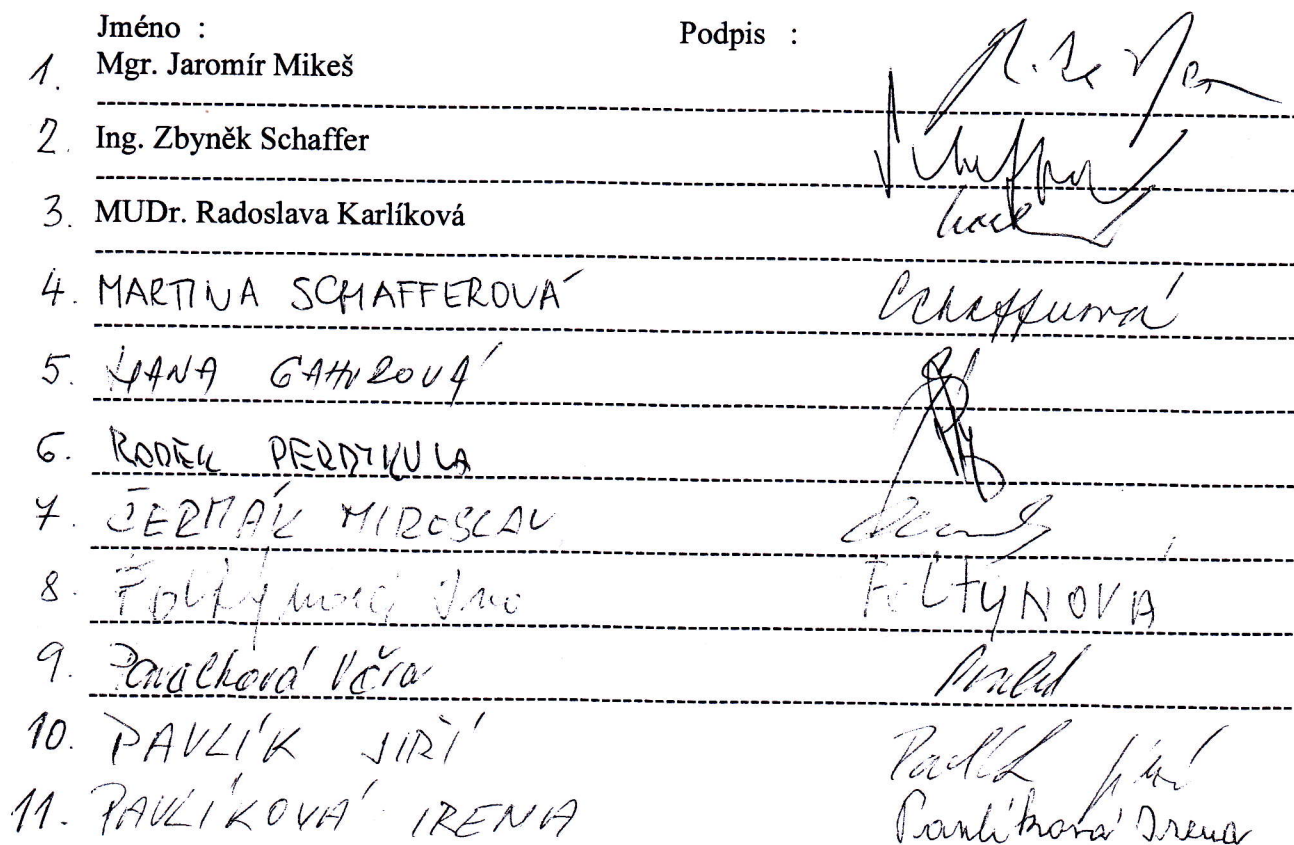 Jméno : Podpis :
1. Mgr. Jaromír Mikeš
2. Ing. Zbyněk Schaffer
3. MUDr. Radoslava Karlíková
4. MARTINA SCHAFFEROVÁ Schafferová
5. HANA
6. RADEK PERDIKULA
7. ČERMÁK MIROSLAV
8. FOLTÝNOVÁ
9. Věra
10. PAVLÍK JIŘÍ Pavlík Jiří
11. PAVLÍKOVÁ IRENA Pavlíková Irena